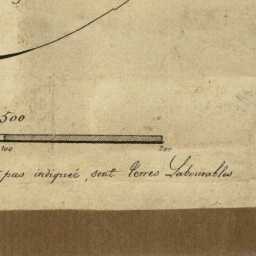 500
100 200
pas indiqueé, sont terres Labourables